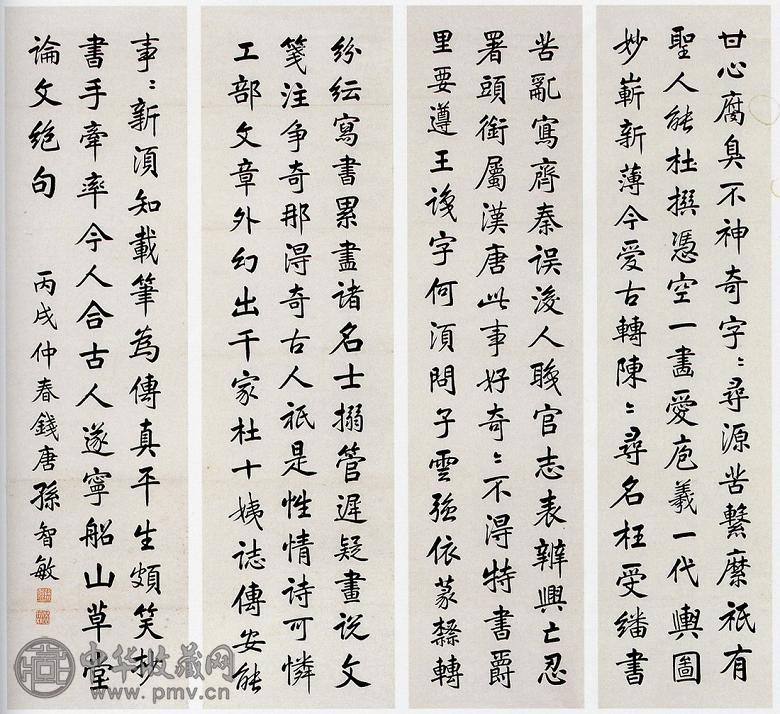 甘心腐臭不神奇字〻尋源苦繫縻祇有
聖人能杜撰憑空一畫愛庖羲一代輿圖
妙嶄新薄今愛古轉陳〻尋名枉受繙書
苦亂寫齊秦誤後人職官志表辨興亡忍
署頭銜屬漢唐此事好奇〻不得特書爵
里要遵王識字何須問子雲強依篆隸轉
紛紜寫書累盡諸名士搦管遲疑畫說文
箋注爭奇那得奇古人祇是性情詩可憐
工部文章外幻出千家杜十姨誌傳安能
事〻新須知載筆為傳真平生頗笑抄
書手牽率今人合古人遂寧船山草堂
論文絕句 丙戌仲春錢唐孫智敏
中华收藏网
www.pmv.cn